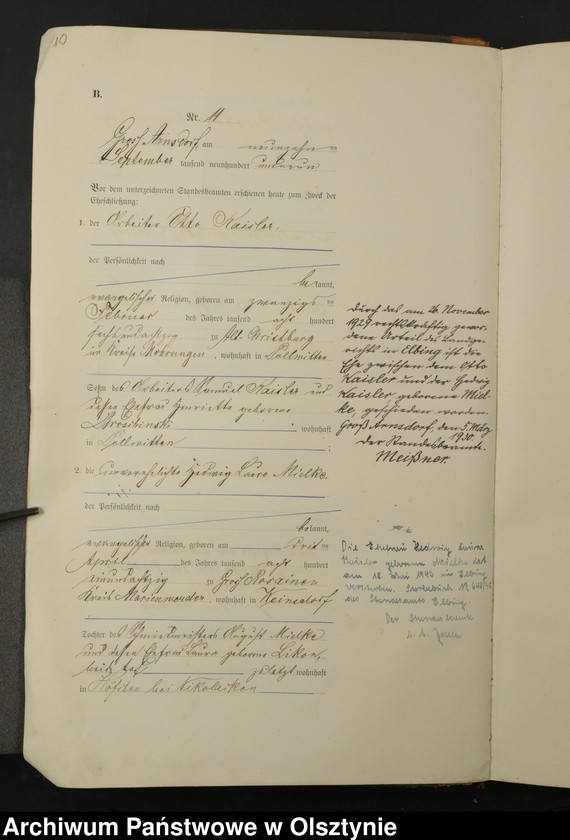 10
B.
Nr. 11
Groß Arnsdorf, am neunzehn
September tausend neunhundert
Vor dem unterzeichneten Standesbeamten erschienen heute zum Zweck der
Eheschließung:
1. der Arbeiter Otto Kaisler,
der Persönlichkeit nach
be kannt,
evangelischer Religion, geboren am zwanzigs ten
Februar des Jahres tausend acht hundert
sechsundachtzig zu Alt Christburg
im Kreise Mohrungen, wohnhaft in Sollwitten
Sohn des Arbeiters Samuel Kaisler und
dessen Ehefrau Henriette geborene
wohnhaft
in Sollwitten
2. die unverehelichte Hedwig Laura Mielke
der Persönlichkeit nach
bekannt,
evangelischer Religion, geboren am drit ten
April des Jahres tausend acht hundert
neunundachtzig zu Groß Rosainen
Kreis Marienwerder, wohnhaft in Reinsdorf
Tochter des Schmiedmeisters August Mielke
und dessen Ehefrau Laura geborene
beide tot, zuletzt wohnhaft
in bei Nikolaiken
Durch das am 26. November
1929 rechtskräftig gewor-
dene Urteil des Landge-
richts in Elbing ist die
Ehe zwischen dem Otto
Kaisler und der Hedwig
Kaisler geborene Miel-
ke, geschieden worden.
Groß Arnsdorf, den 5. März
1930.
Der Standesbeamte.
Meißner.
Die Ehefrau Hedwig Laura
Kaisler geborene Mielke ist
am 18. 1940 in Elbing
verstorben. Sterbebuch N
des Standesamts Elbing.
Der Standesbeamte
Archiwum Państwowe w Olsztynie